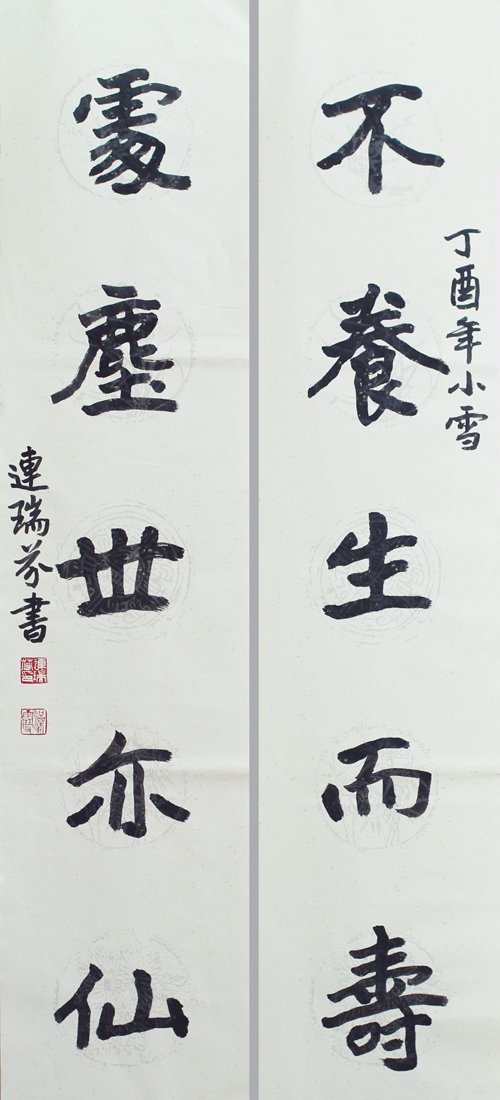 丁酉年小雪
不養生而壽
處塵世亦仙
連瑞芬書